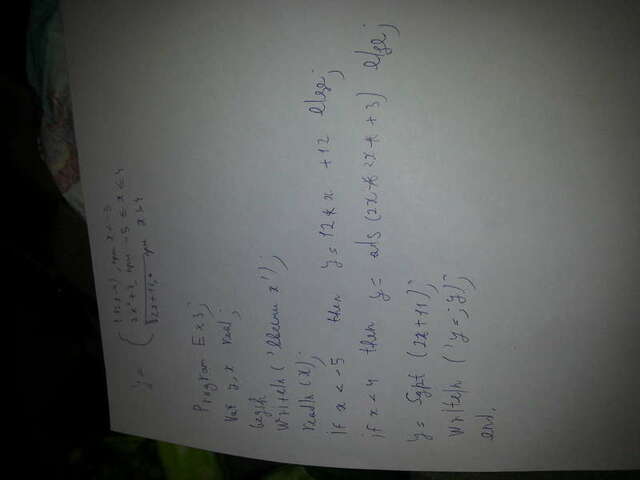 y=
при x<-5
при -5 ≤ x ≤ 4
при x>4
Program Ex3;
Var y,x real;
begin
Writeln('Введи x');
readln(x);
if x<-5 then y=12*x+12 else;
if x<4 then y= abs(2x*2x+3) else;
y= Sqrt(2x+11);
Writeln('y=;y)";
end.